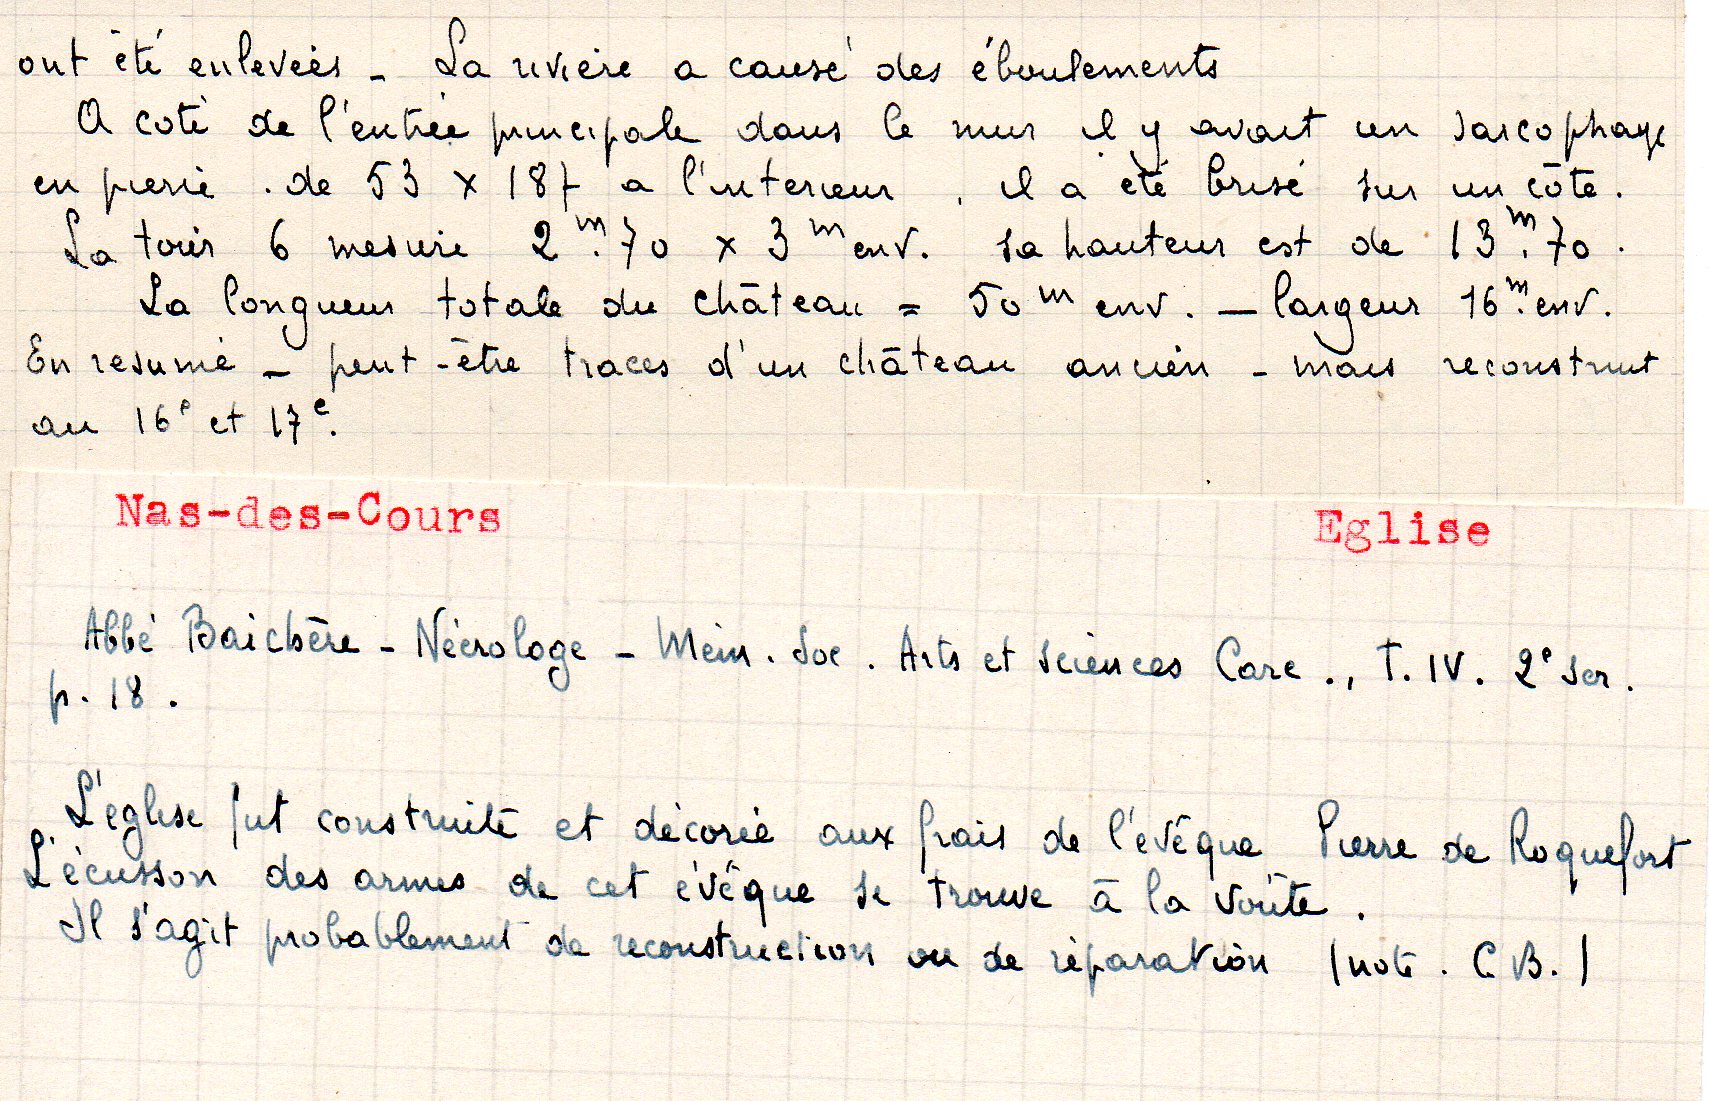 ont été enlevées - La rivière a causé des éboulements
A coté de l'entrée principale dans le mur il y avait un sarcophage
en pierre . de 53 x 187 a l'interieur . il a été brisé sur un côté.
La tour 6 mesure 2m.70 x 3m env. sa hauteur est de 13m.70.
La longueur totale du château = 50m env. - largeur 16m. env.
En resumé - peut-être traces d'un château ancien - mais reconstruit
au 16e et 17e.
Nas-des-Cours Eglise
Abbé Baichère - Nécrologe - Mém. Soc. Arts et Sciences Carc., T. IV. 2e ser.
p. 18.
L'église fut construite et décorée aux frais de l'évêque Pierre de Roquefort
L'écusson des armes de cet évêque se trouve à la voûte.
Il s'agit probablement de reconstruction ou de réparation (note. C. B.)